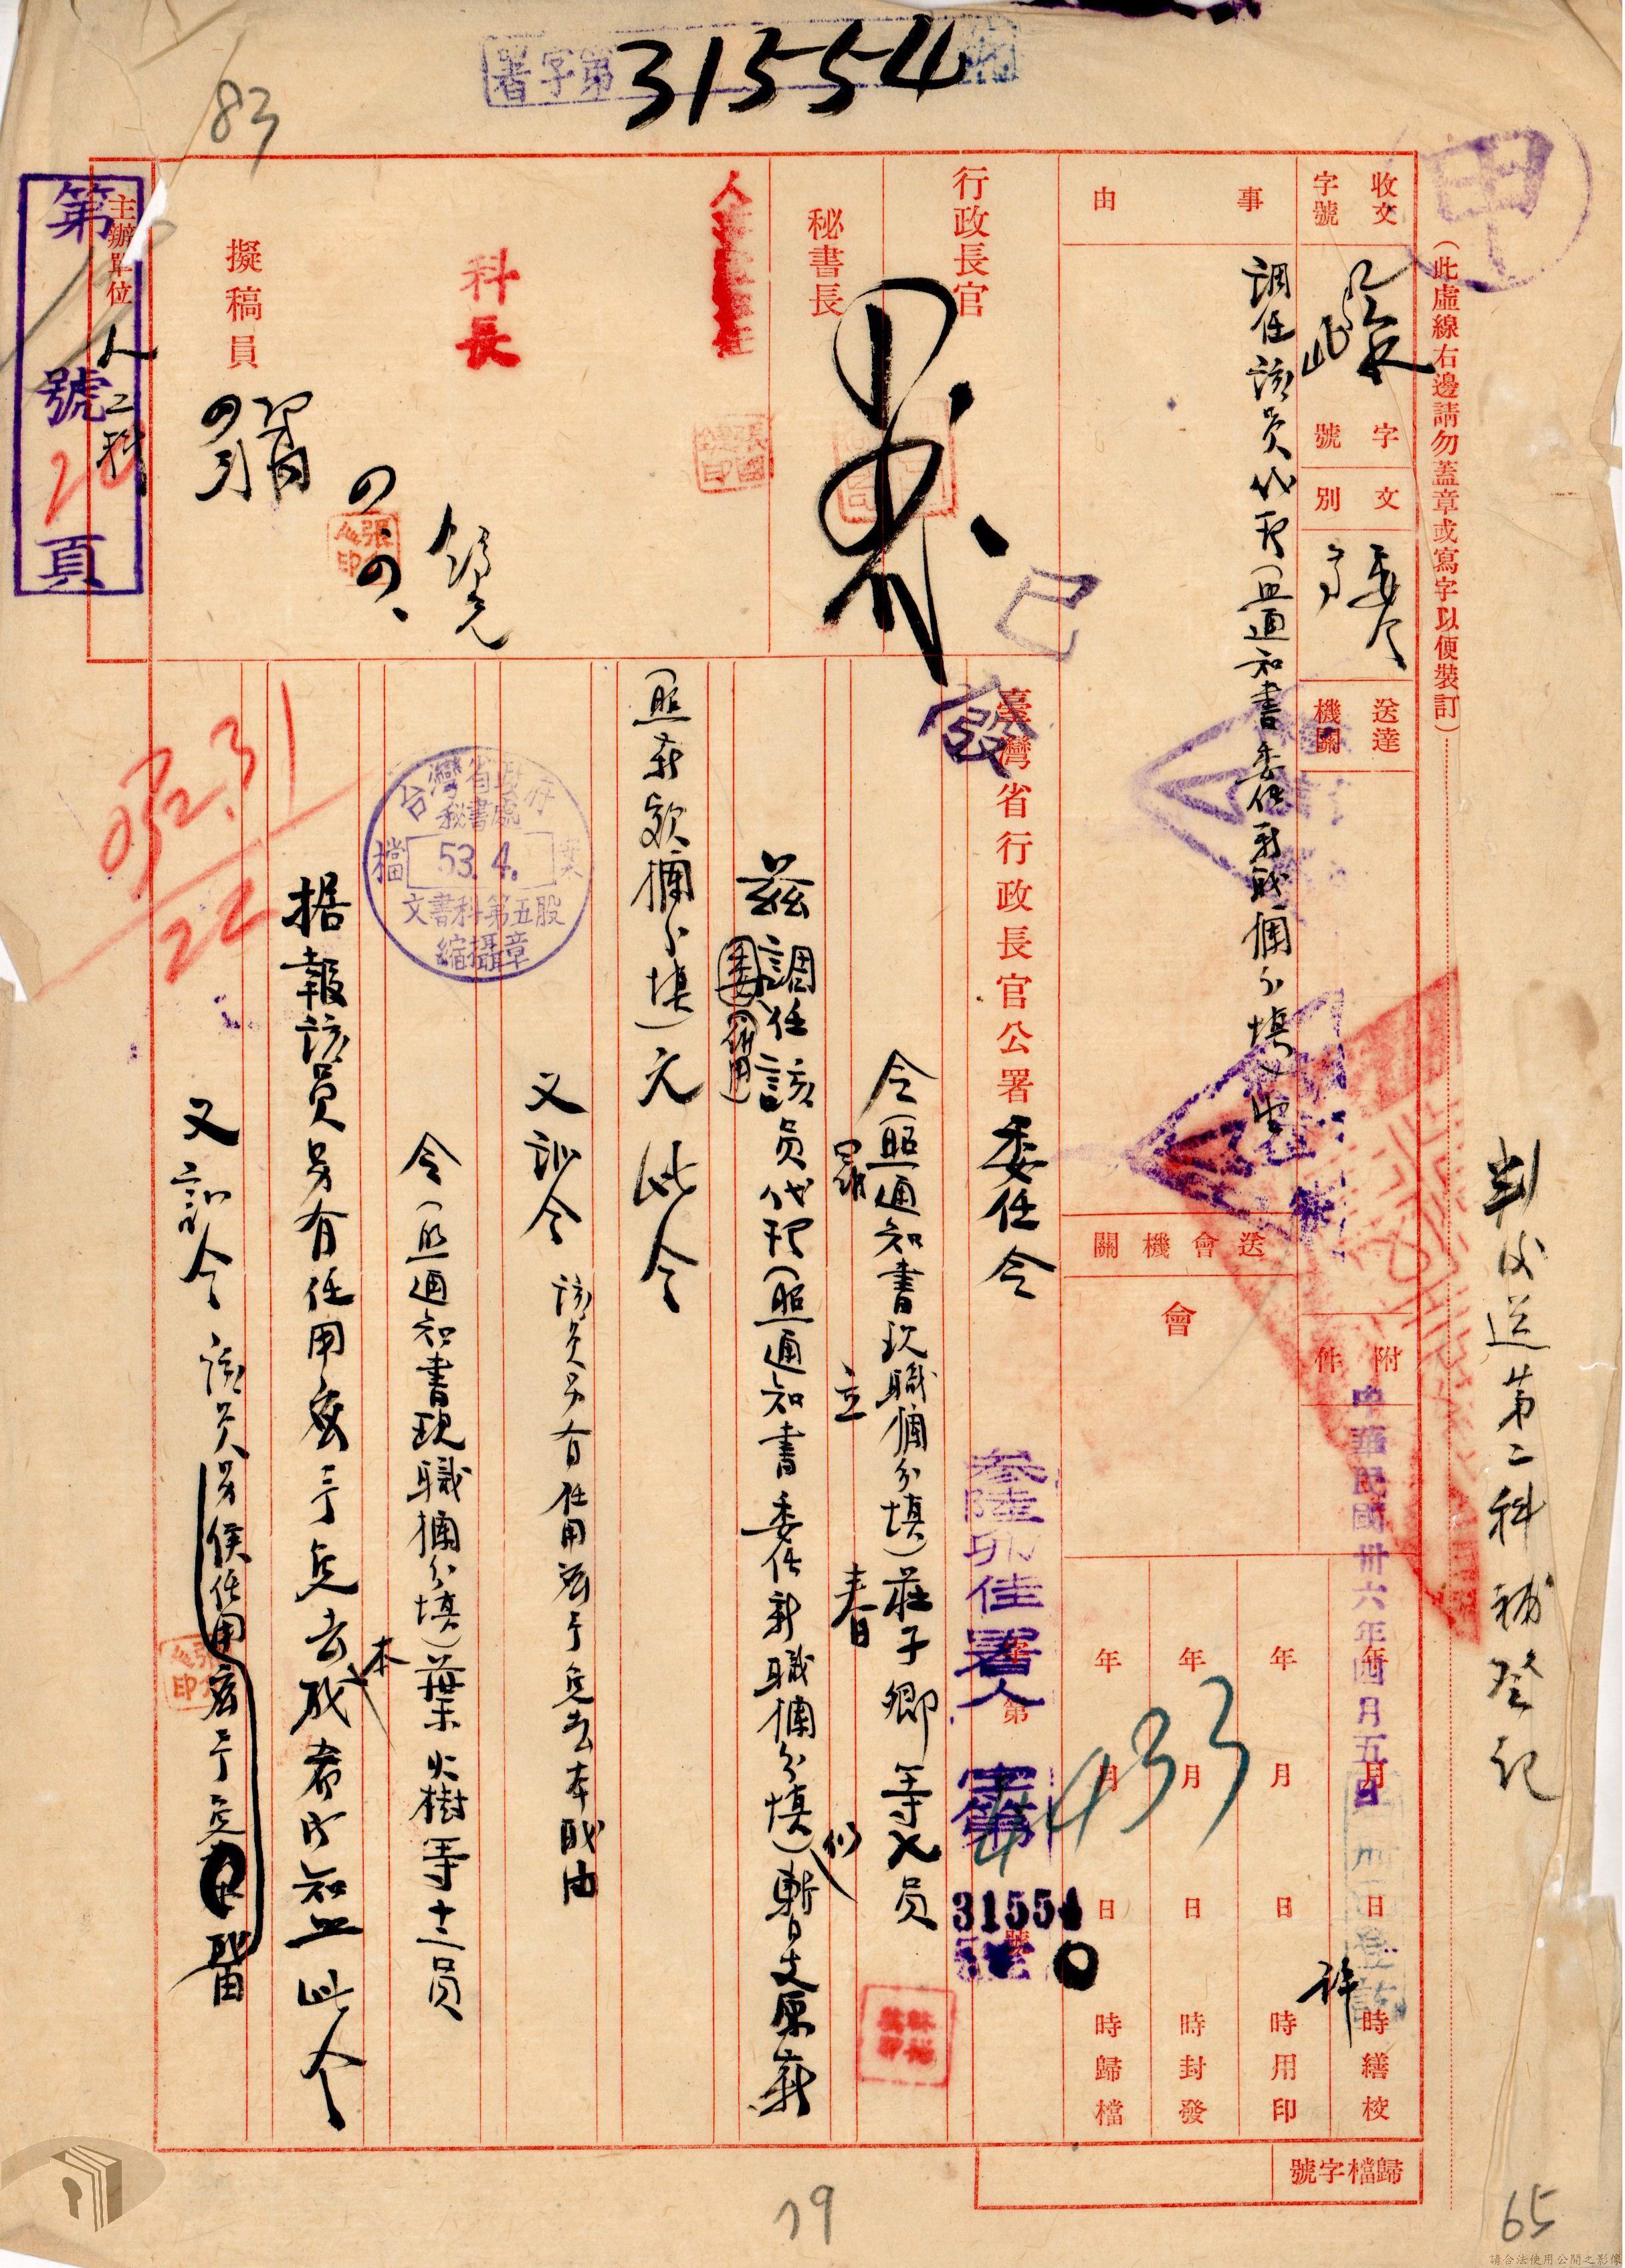 署字第 31554
甲
83
(此虛線右邊請勿蓋章或寫字以便裝訂)
判後送第二科補登記
收文字號
字號
文別
委令
送達機關
附件
中華民國卅六年四月五日
事由
調任該員代理(照通知書委任新職欄分填)由
送會機關
會
年 月 日 時繕校
年 月 日 時用印
年 月 日 時封發
年 月 日 時歸檔
4433
行政長官
秘書長
科長
擬稿員
主辦單位 人二科
第 號 頁
已發
臺灣省行政長官公署委任令
參陸卯佳署人字第
31554
號
令(照通知書現職欄分填)莊子鄉等七員
茲調任該員代理(照通知書委任新職欄分填)暫支原薪
(照薪額欄分填)元此令
又訓令 該員另有任用應予免去本職由
令(照通知書現職欄分填)葉火樹等十二員
据報該員另有任用應予免去本職着即知照此令
又訓令 該員另候任用應予免
台灣省政府
秘書處
檔 53.4. 案
文書科第五股
縮攝章
032.31
22
歸檔字號
79
65
請合法使用公開之影像